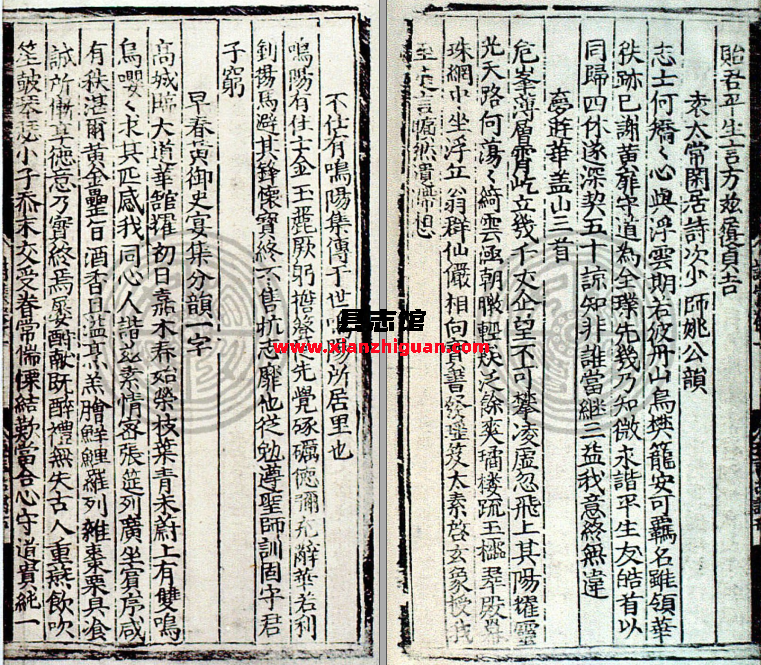 貽君平生言方茲履貞吉
袁太常閑居詩次少師姚公韻
志士何矯々心與浮雲期若彼丹山鳥樊籠安可羈名雖領華
秩跡已謝黃扉守道為全璞先幾乃知微求諧平生友皓首以
同歸四休遂深契五十諒知非誰當繼三益我意終無違
夢遊華盖山三首
危峯薄層霄屹立幾千丈企望不可攀凌虛忽飛上其陽耀靈
光天路何蕩々綺雲函朝暾輕飈泛餘爽璚楼疏玉櫺翠殿
珠網中坐浮丘翁群仙儼相向青書發瑶笈太素啓玄象授我
至言然遺想
不仕有鳴陽集傳于世鳴陽所居里也
鳴陽有仕士金玉麗厥躬擔簦從先覺琢礪德彌充辭華若利
釗揚馬避其鋒懷寶終不售抗志靡他從勉遵聖師訓固守君
子窮
早春黃御史宴集分韻一字
高城臨大道華舘耀初日嘉木春始榮枝葉青未蔚上有雙鳴
鳥嚶々求其匹感我同心人諧茲素情密張筵列廣坐賓序咸
有秩湛爾黃金罍旨酒香且溢烹羔膾鮮鯉羅列雜棗栗具飡
誠所慚享德意乃實終焉宴酬獻既醉禮無失古人重燕飲吹
笙皷琴瑟小子忝末交受眷常惴慄結歡當合心守道貴純一
县志馆
www.xianzhiguan.com